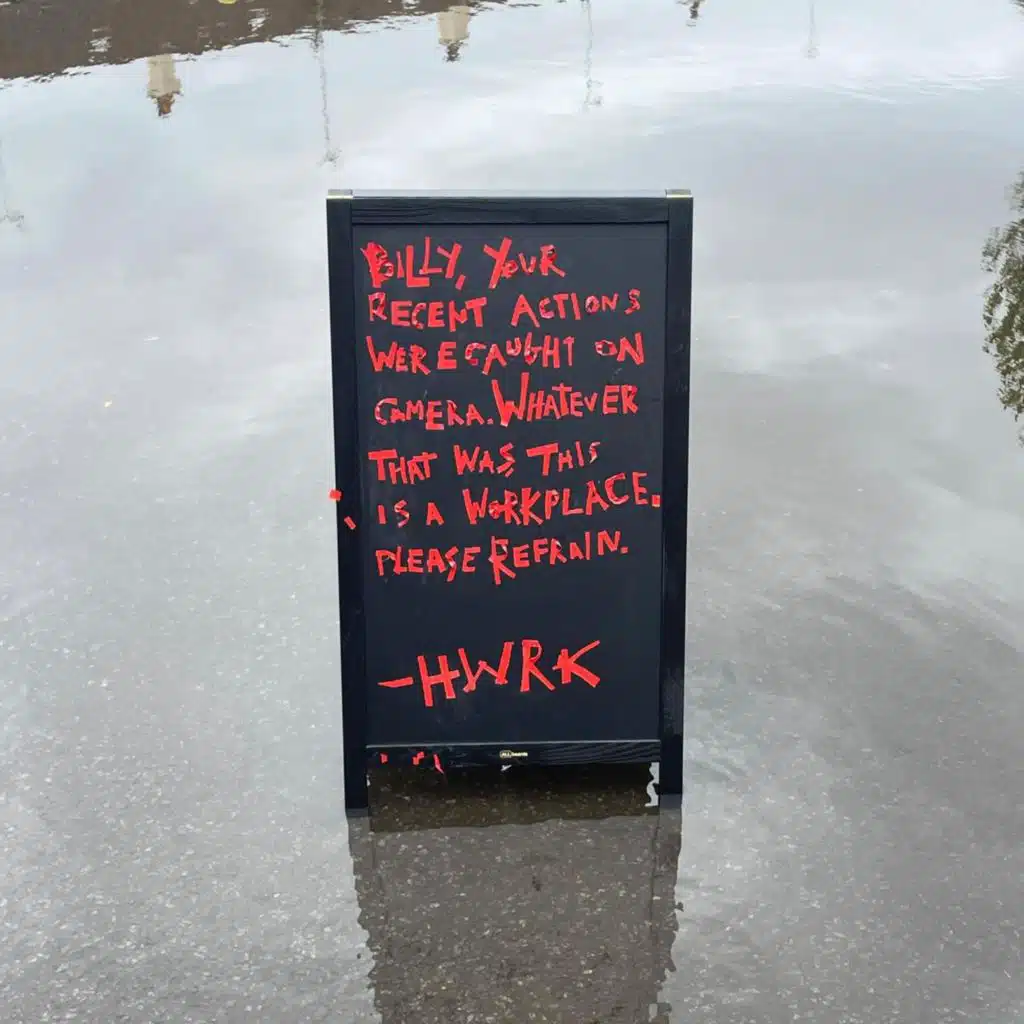 BILLY, YOUR
RECENT ACTIONS
WERE CAUGHT ON
CAMERA. WHATEVER
THAT WAS THIS
IS A WORKPLACE.
PLEASE REFRAIN.
-HWRK
ALLboards